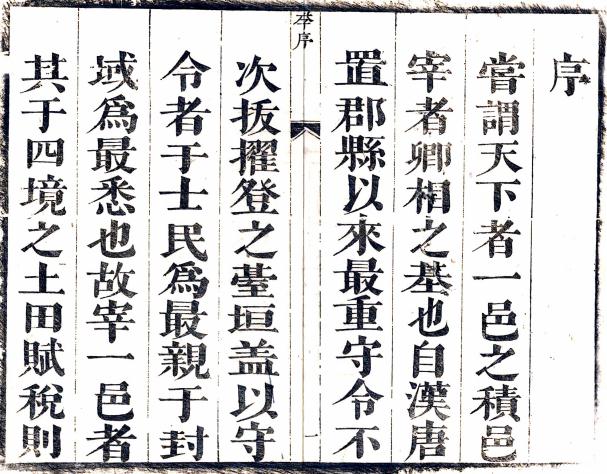 序
嘗謂天下者一邑之積邑
宰者卿相之基也自漢唐
置郡縣以來最重守令不
序
次拔擢登之臺垣盖以守
令者于士民爲最親于封
域爲最悉也故宰一邑者
其于四境之土田賦稅則